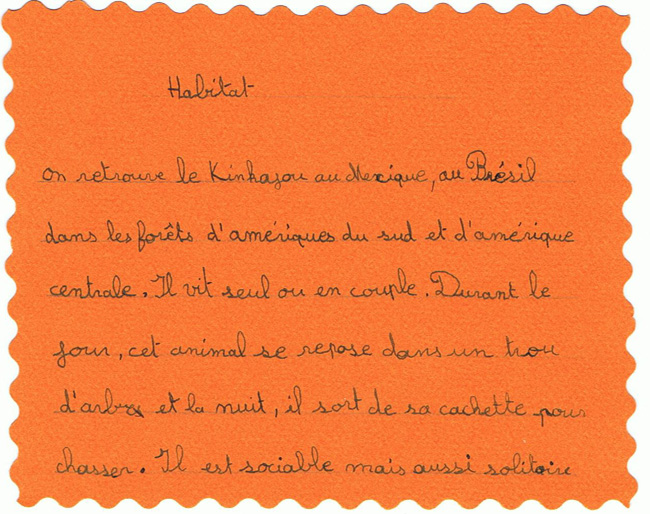 Habitat
On retrouve le Kinkajou au Mexique, au Brésil
dans les forêts d'amériques du sud et d'amérique
centrale. Il vit seul ou en couple. Durant le
jour, cet animal se repose dans un trou
d'arbre et la nuit, il sort de sa cachette pour
chasser. Il est sociable mais aussi solitaire